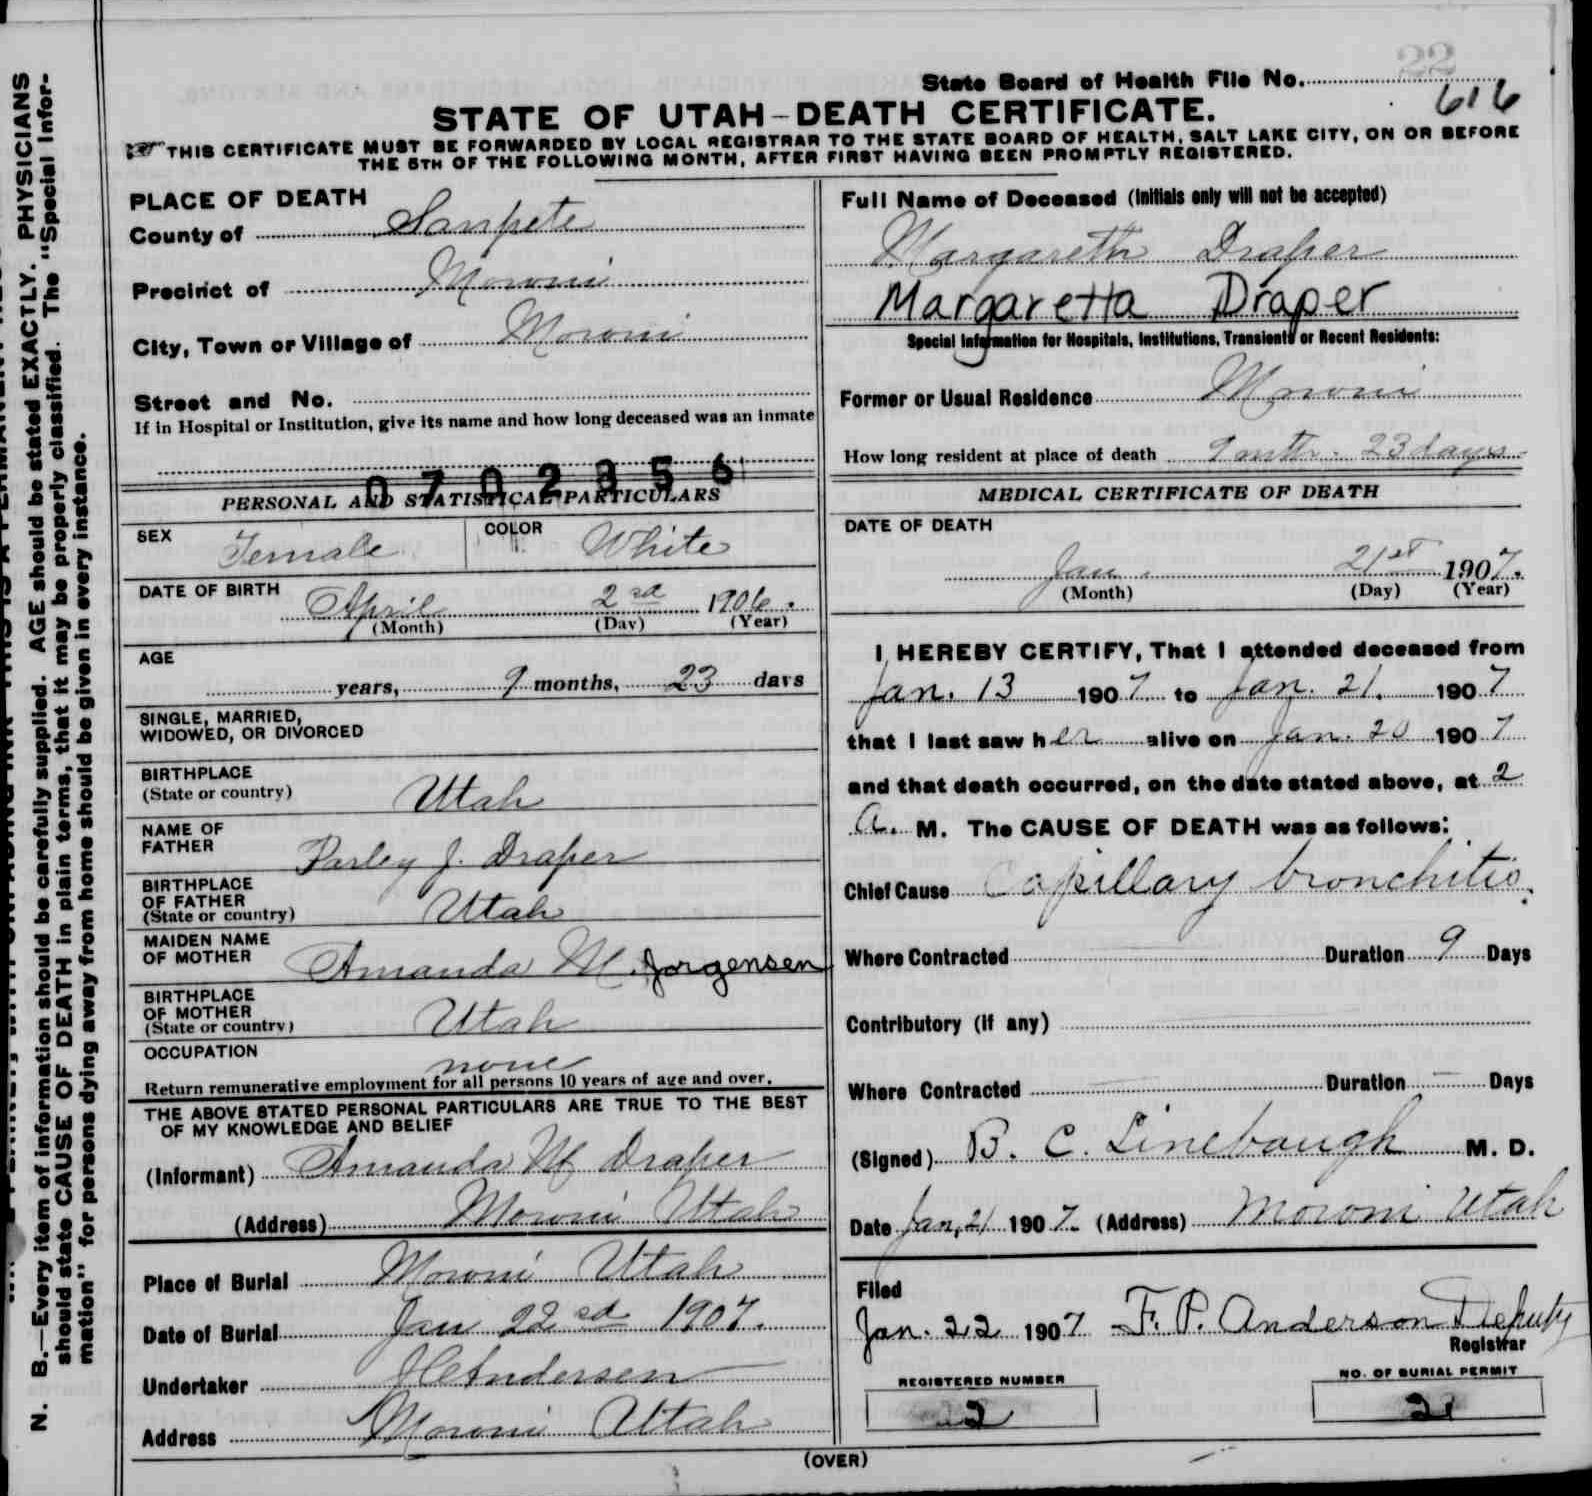 22
State Board of Health File No.
616
STATE OF UTAH-DEATH CERTIFICATE.
THIS CERTIFICATE MUST BE FORWARDED BY LOCAL REGISTRAR TO THE STATE BOARD OF HEALTH, SALT LAKE CITY, ON OR BEFORE
THE 5TH OF THE FOLLOWING MONTH, AFTER FIRST HAVING BEEN PROMPTLY REGISTERED.
N. B.—Every item of information should be carefully supplied. AGE should be stated EXACTLY. PHYSICIANS
should state CAUSE OF DEATH in plain terms, that it may be properly classified. The "Special Infor-
mation" for persons dying away from home should be given in every instance.
PLACE OF DEATH
County of Sanpete
Precinct of Moroni
City, Town or Village of Moroni
Street and No.
If in Hospital or Institution, give its name and how long deceased was an inmate
0702356
PERSONAL AND STATISTICAL PARTICULARS
SEX Female COLOR White
DATE OF BIRTH April 2nd 1906.
(Month) (Day) (Year)
AGE
years, 9 months, 23 days
SINGLE, MARRIED,
WIDOWED, OR DIVORCED
BIRTHPLACE
(State or country) Utah
NAME OF
FATHER Parley J. Draper
BIRTHPLACE
OF FATHER
(State or country) Utah
MAIDEN NAME
OF MOTHER Amanda M. Jorgensen
BIRTHPLACE
OF MOTHER
(State or country) Utah
OCCUPATION none
Return remunerative employment for all persons 10 years of age and over.
THE ABOVE STATED PERSONAL PARTICULARS ARE TRUE TO THE BEST
OF MY KNOWLEDGE AND BELIEF
(Informant) Amanda M Draper
(Address) Moroni Utah
Place of Burial Moroni Utah
Date of Burial Jan 22nd 1907.
Undertaker Andersen
Address Moroni Utah
Full Name of Deceased (Initials only will not be accepted)
Margareth Draper
Margaretta Draper
Special Information for Hospitals, Institutions, Transients or Recent Residents:
Former or Usual Residence Moroni
How long resident at place of death 9 mth. 23 days
MEDICAL CERTIFICATE OF DEATH
DATE OF DEATH
Jan. 21st 1907.
(Month) (Day) (Year)
I HEREBY CERTIFY, That I attended deceased from
Jan. 13 1907 to Jan. 21. 1907
that I last saw her alive on Jan. 20 1907
and that death occurred, on the date stated above, at 2
a. M. The CAUSE OF DEATH was as follows:
Chief Cause Capillary bronchitis.
Where Contracted Duration 9 Days
Contributory (if any)
Where Contracted Duration — Days
(Signed) B. C. Linebaugh M. D.
Date Jan, 21 1907. (Address) Moroni Utah
Filed
Jan. 22 1907 F. P. Anderson Deputy
Registrar
REGISTERED NUMBER
2
NO. OF BURIAL PERMIT
2
(OVER)